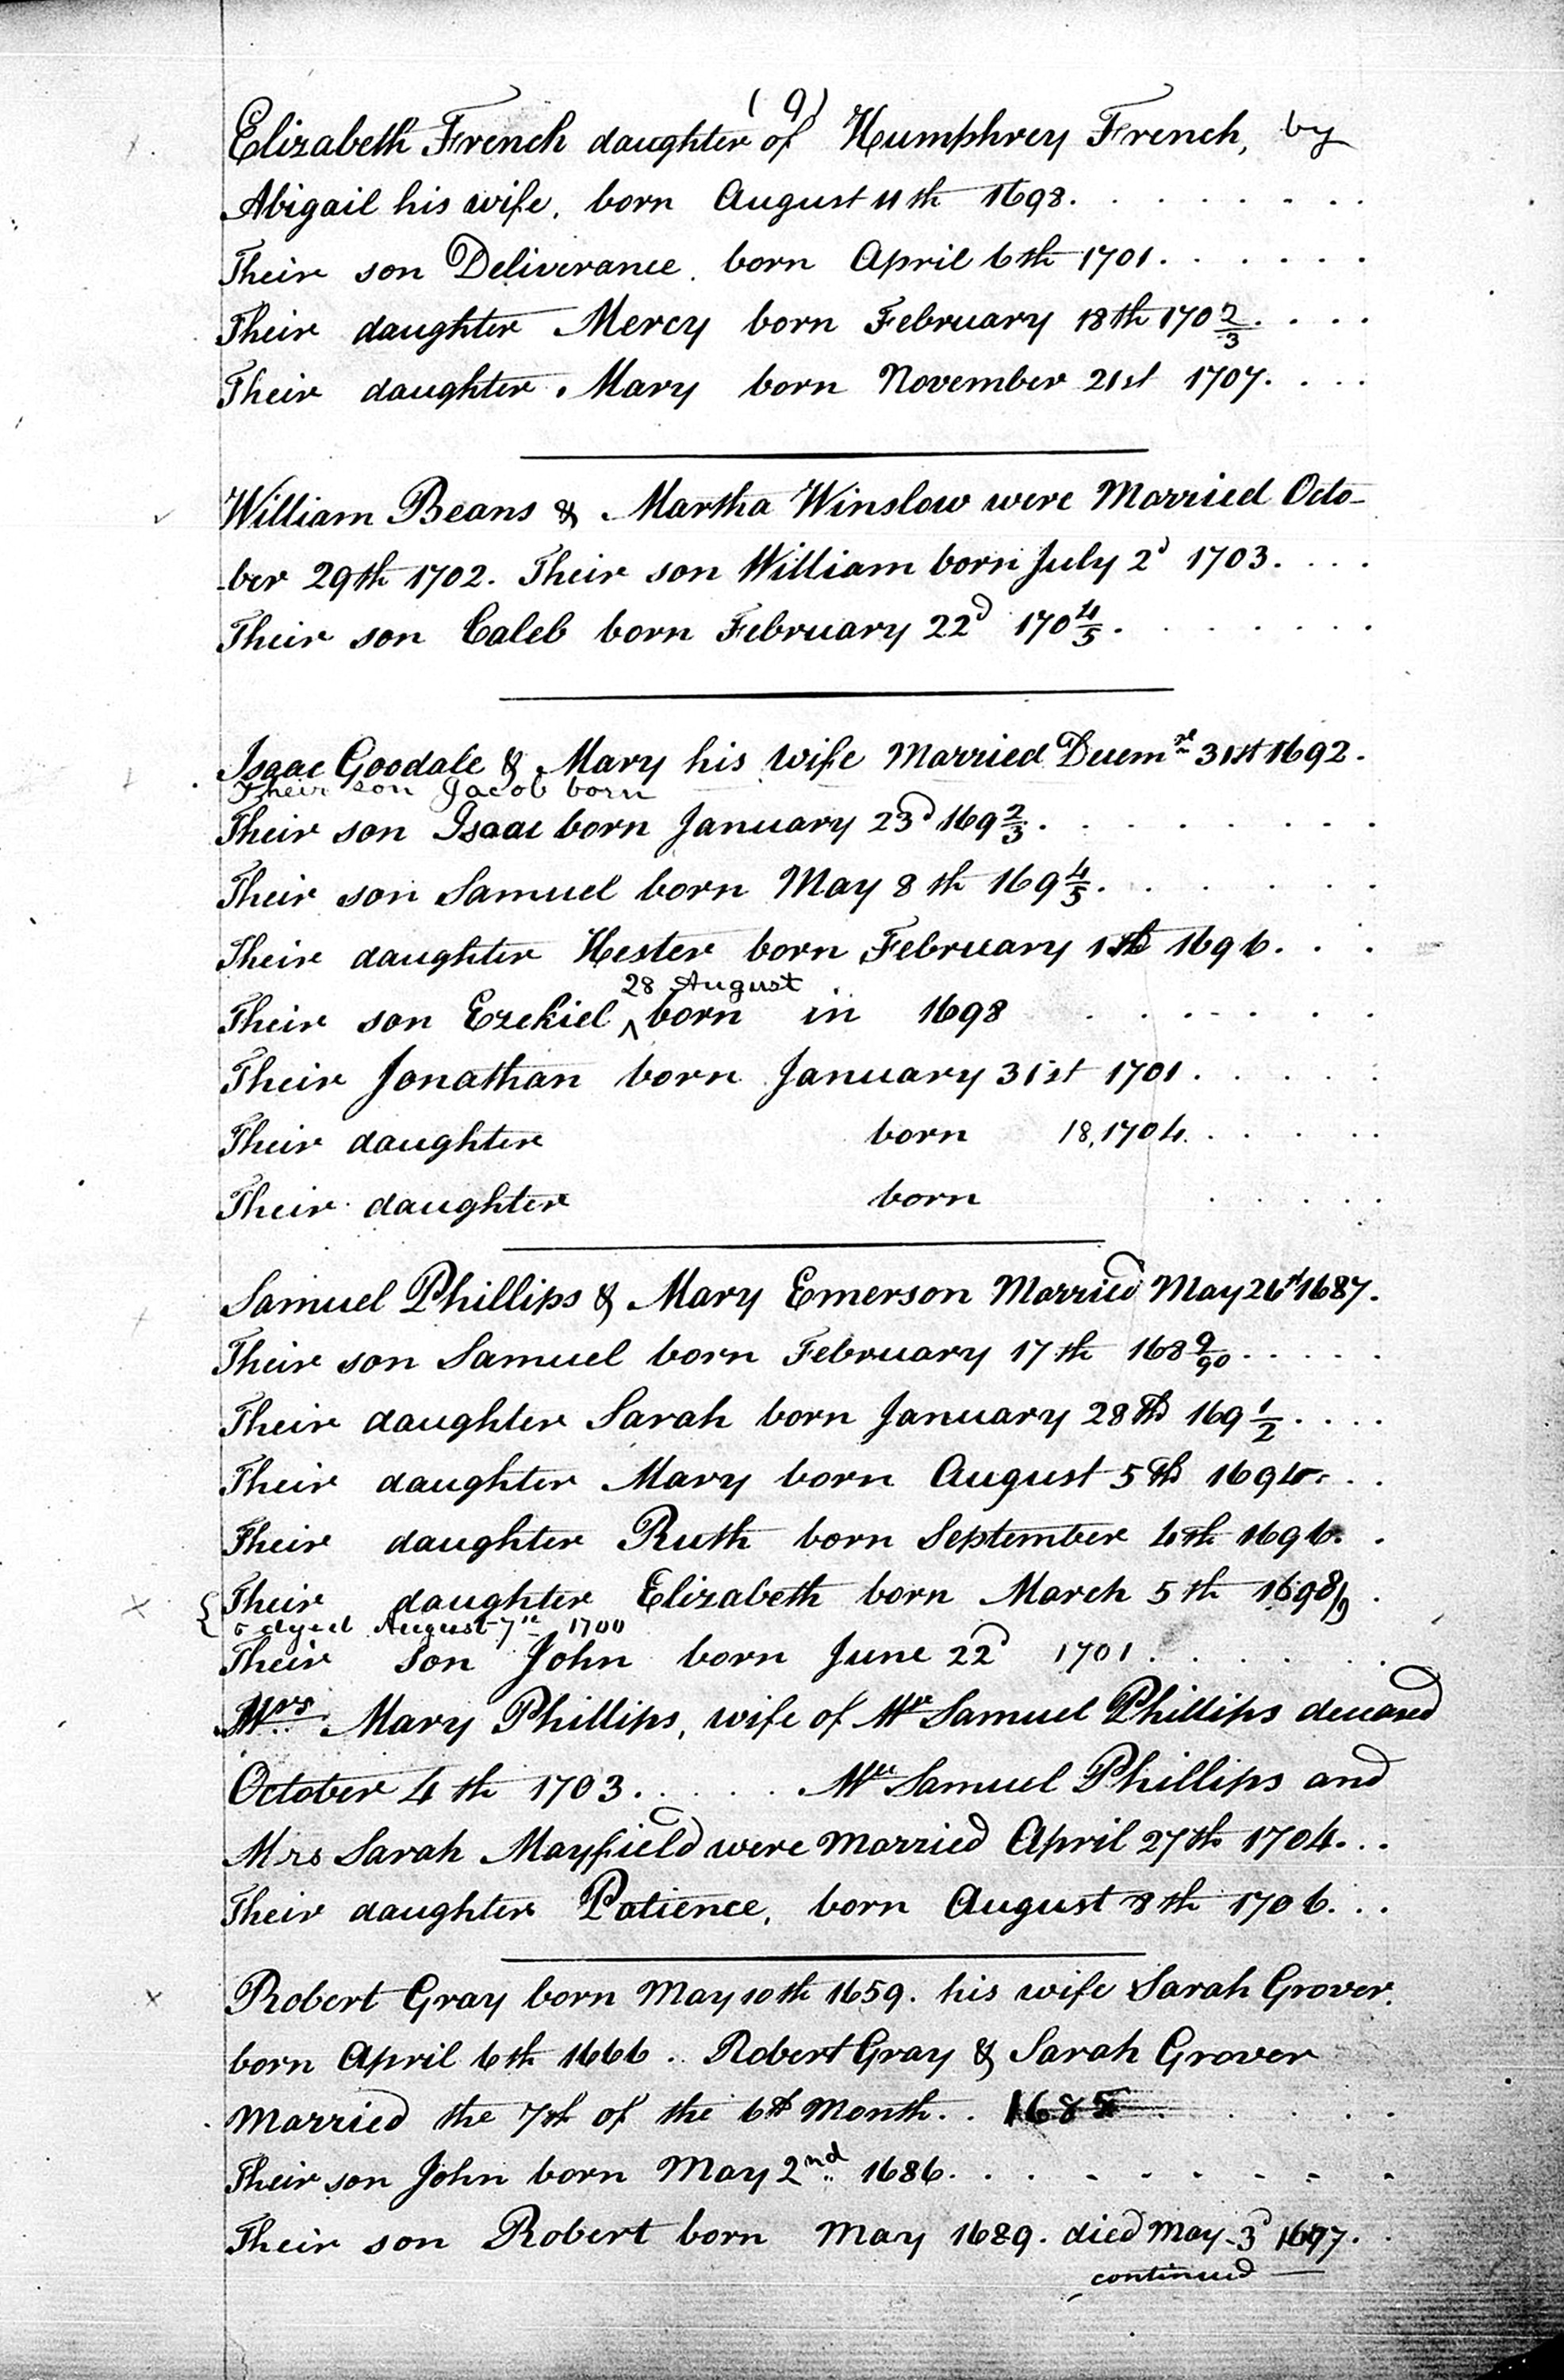 (9)
Elizabeth French daughter of Humphrey French, by
Abigail his wife, born August 11th 1698.
Their son Deliverance. born April 6th 1701.
Their daughter Mercy born February 18th 170 2/3.
Their daughter Mary born November 21st 1707.
William Beans & Martha Winslow were Married Octo-
-ber 29th 1702. Their son William born July 2d 1703.
Their son Caleb born February 22d 170 4/5.
Isaac Goodale & Mary his wife Married Decemr 31st 1692.
Their son Jacob born
Their son Isaac born January 23d 169 2/3.
Their son Samuel born May 8th 169 4/5.
Their daughter Hester born February 1st 1696.
28 August
Their son Ezekiel ^ born in 1698
Their Jonathan born January 31st 1701.
Their daughter born 18, 1704.
Their daughter born
Samuel Phillips & Mary Emerson Married May 26th 1687.
Their son Samuel born February 17th 168 9/90.
Their daughter Sarah born January 28th 169 1/2.
Their daughter Mary born August 5th 1694.
Their daughter Ruth born September 4th 1696.
Their daughter Elizabeth born March 5th 1698/9.
& dyed August 7th 1700
Their son John born June 22d 1701.
Mrs. Mary Phillips, wife of Mr Samuel Phillips deceased
October 4th 1703. Mr Samuel Phillips and
Mrs Sarah Mayfield were Married April 27th 1704.
Their daughter Patience, born August 8th 1706.
Robert Gray born May 10th 1659. his wife Sarah Grover.
born April 6th 1666. Robert Gray & Sarah Grover
Married the 7th of the 6th Month. 1685
Their son John born May 2nd 1686.
Their son Robert born May 1689. died May 3d 1697.
continued —